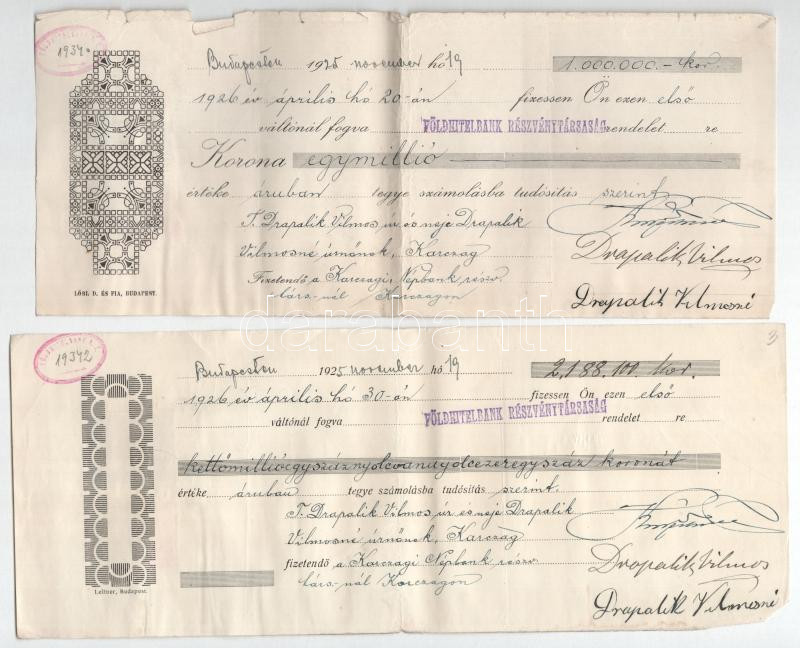 19340
Budapesten 1925 november hó 19 1.000.000.- kor.
1926 év április hó 20-án fizessen Ön ezen első
váltónál fogva FÖLDHITELBANK RÉSZVÉNYTÁRSASÁG rendelet re
Korona egymillió
értéke áruban tegye számolásba tudósítás szerint
T. Drapalik Vilmos úr és neje Drapalik
Vilmosné úrnőnek, Karczag
Drapalik Vilmos
Fizetendő a Karczagi Népbank részv.
társ-nál Karczagon
LÖBL D. ÉS FIA, BUDAPEST.
Drapalik Vilmosné
darabanth
3
19342
Budapesten 1925 november hó 19 2.188.100 kor
1926 év április hó 30-án fizessen Ön ezen első
váltónál fogva FÖLDHITELBANK RÉSZVÉNYTÁRSASÁG rendelet re
kettőmillióegyszáznyolcvannyolcezeregyszáz koronát
értéke áruban tegye számolásba tudósítás szerint.
T. Drapalik Vilmos úr és neje Drapalik
Vilmosné úrnőnek, Karczag
fizetendő a Karczagi Népbank részv
társ-nál Karczagon
Drapalik Vilmos
Leitner, Budapest.
Drapalik Vilmosné